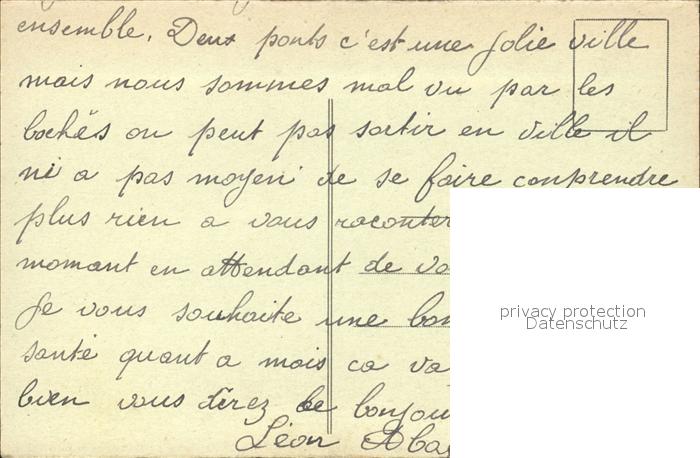 ensemble. Deux ponts c'est une jolie ville
mais nous sommes mal vu par les
bochés on peut pas sortir en ville il
ni a pas moyen de se faire conprendre
plus rien a vous raconter
momant en attendant de
Je vous souhaite une
santé quant a mois ca
bien vous direz le
Léon
privacy protection
Datenschutz